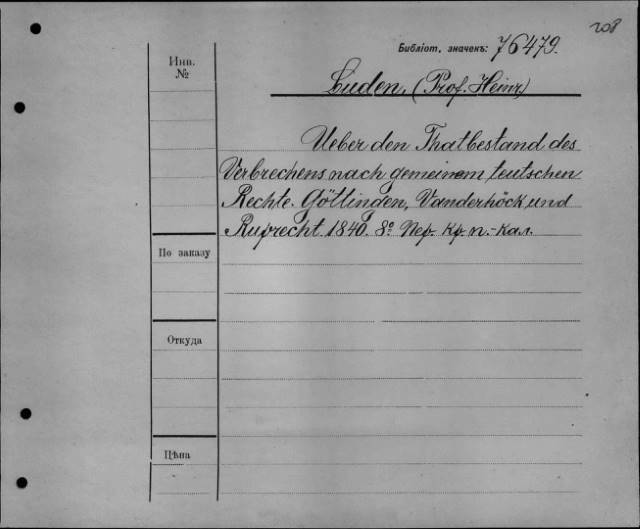 208
Библіот. значекъ: 76479.
Инв.
№
Luden, (Prof. Heinr.)
Ueber den Thatbestand des
Verbrechens nach gemeinem teutschen
Rechte. Göttingen, Vanderhöck und
Ruprecht. 1840. 8º. Пер. кр. п.-кал.
По заказу
Откуда
Цѣна